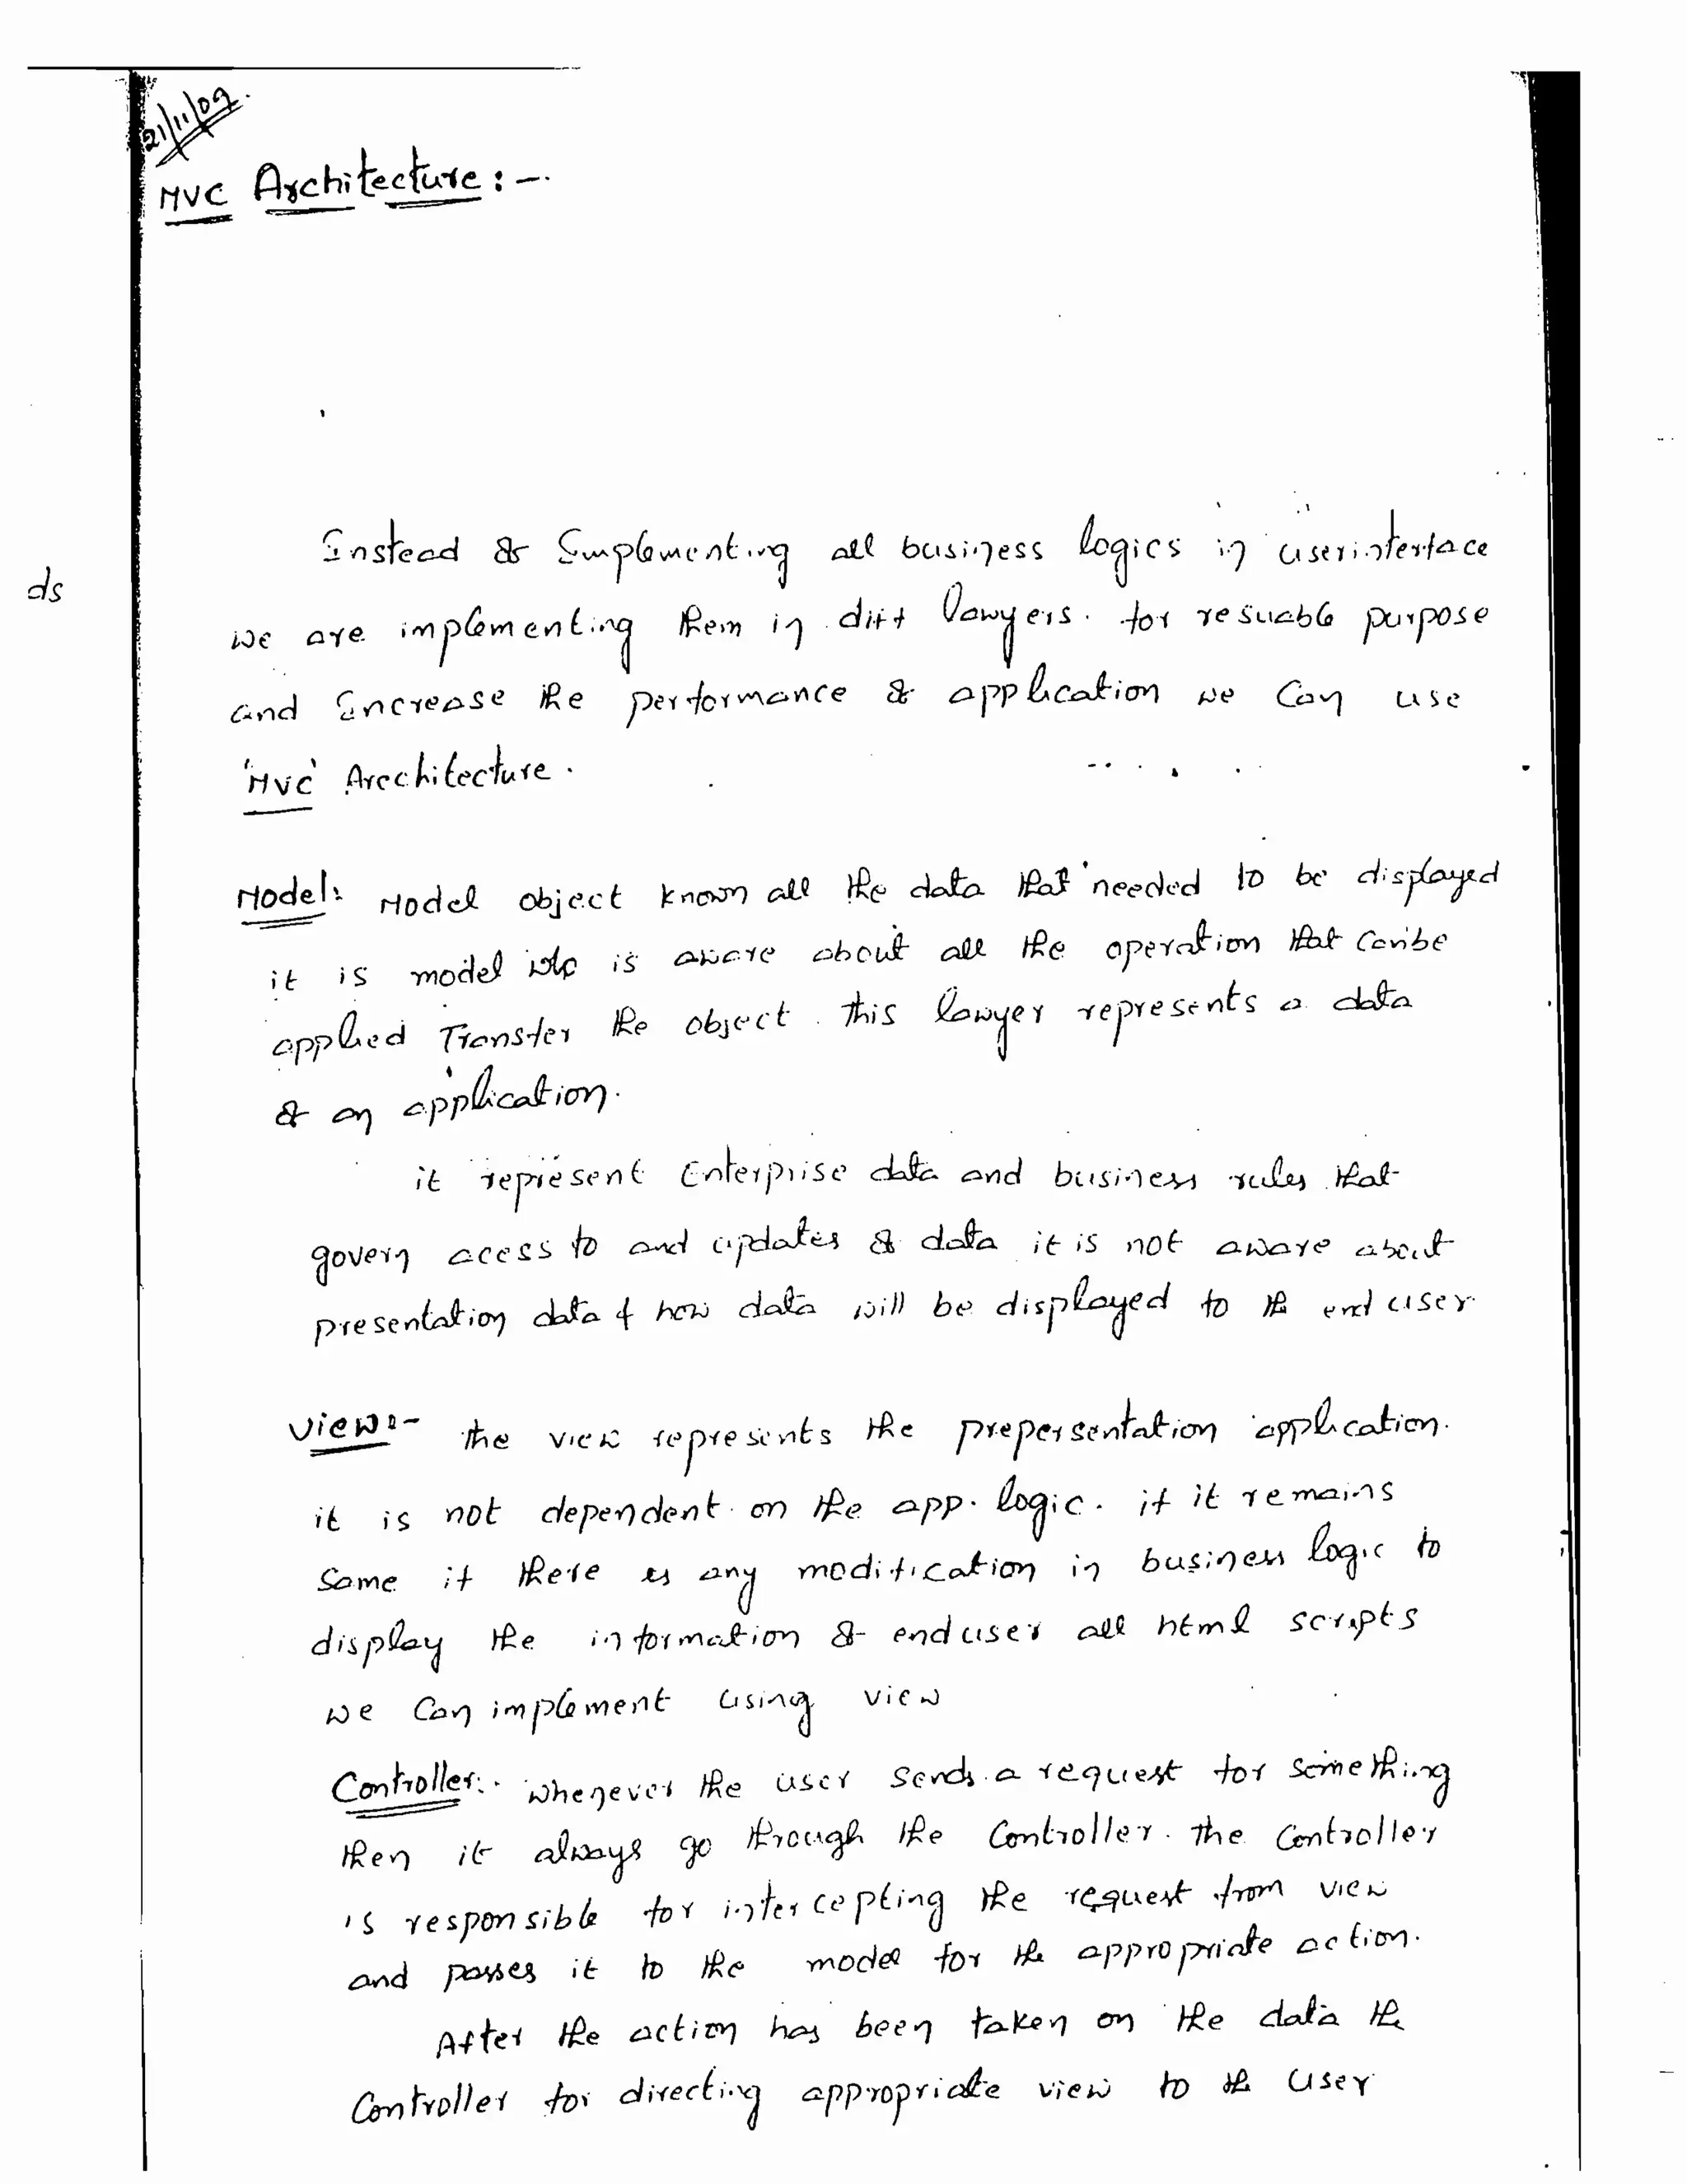 21/11/09.
MVC Architecture : -.
Instead of Implementing all business logics in userinterface
ds
we are implementing them in diff lawyers. for resuable purpose
and Increase the performance of application we Can use
'MVC' Arcchitecture.
Model: Model object known all the data that needed to be displayed
it is model is aware about all the operation that Canbe
applied Transfer the object. this lawyer represents a data
of an application.
it represent Enterprise data and business rules that
govern acess to and updates of data it is not aware about
presentation data & how data will be displayed to the end user
View:- the view represents the prepersentation application.
it is not dependent on the app. logic. if it remains
Same if there is any modification in business logic to
display the information of enduser all html scripts
we Can implement using view
Controller:. Whenever the user sends a request for something
then it always go through the Controller. The Controller
is responsible for intercepting the request from view
and passes it to the model for the appropriate action.
After the action has been taken on the data the
Controller for directing appropriate view to the user